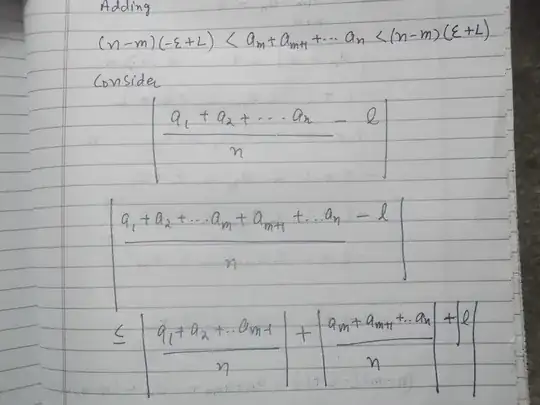 Adding
(n-m)(-ε+L) < a_m + a_{m+1} + ... a_n < (n-m)(ε+L)
Consider
| (a_1 + a_2 + ... a_n)/n - l |
| (a_1 + a_2 + ... a_m + a_{m+1} + ... a_n)/n - l |
≤ | (a_1 + a_2 + ... a_{m-1})/n | + | (a_m + a_{m+1} + ... a_n)/n | + | l |